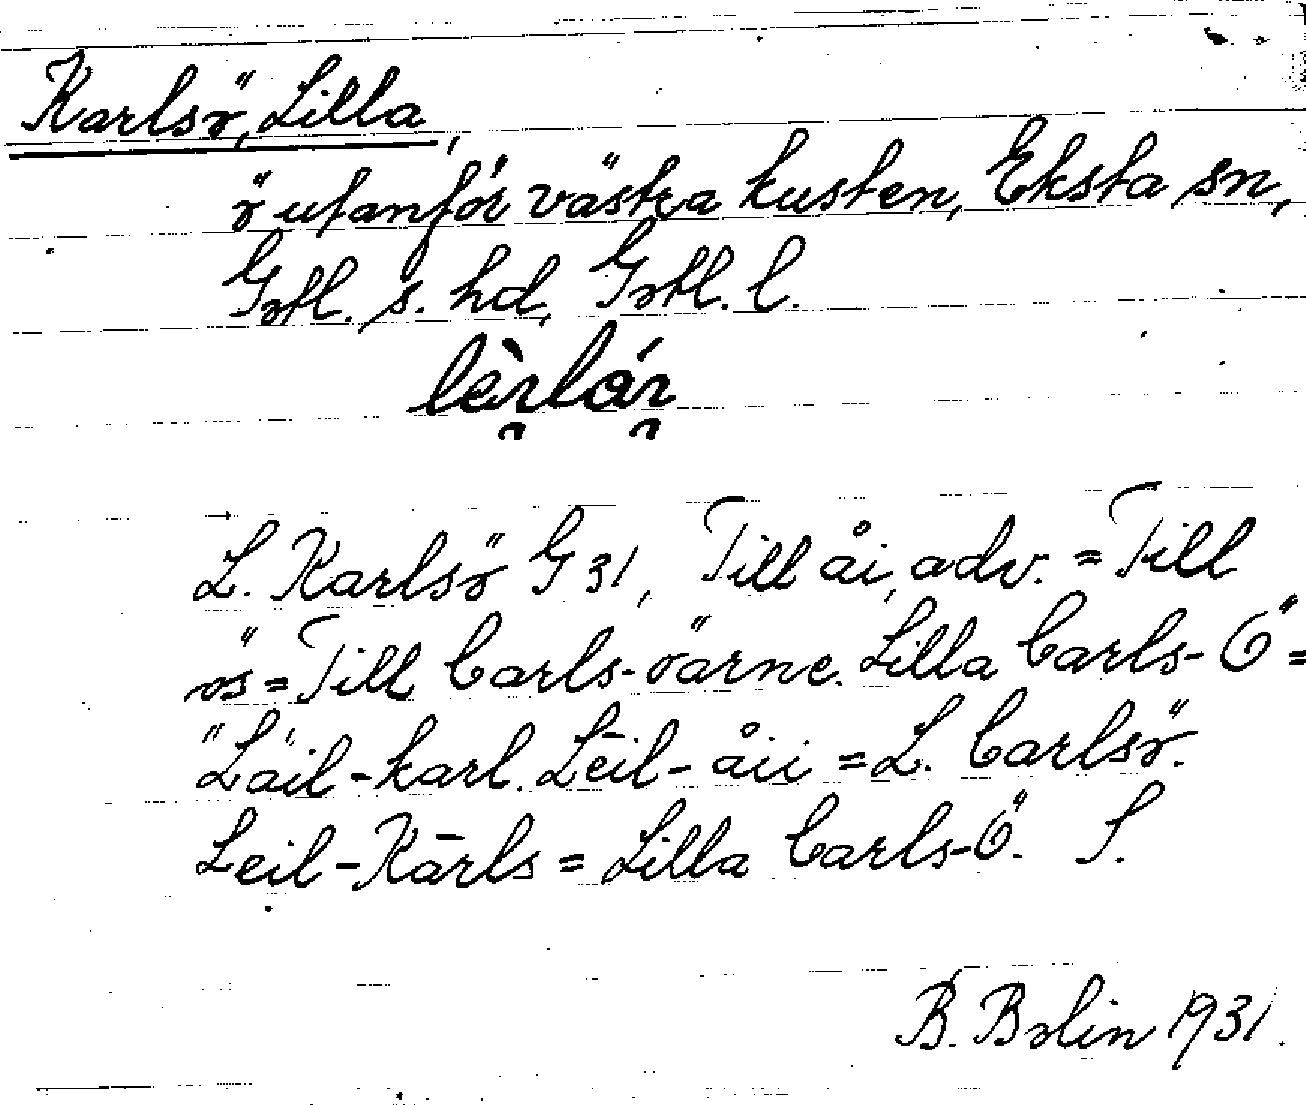 Karlsö, Lilla,
ö utanför västra kusten, Eksta sn,
Gotl. s. hd, Gotl. l.
L. Karlsö G 31, Till åi, adv. = Till
ös = Till Carls-öarne. Lilla Carls-Ö =
"Läil-karl. Lēil-åii = L. Carlsö.
Leil-Kārls = Lilla Carls-Ö. S.
B. Bolin 1931.